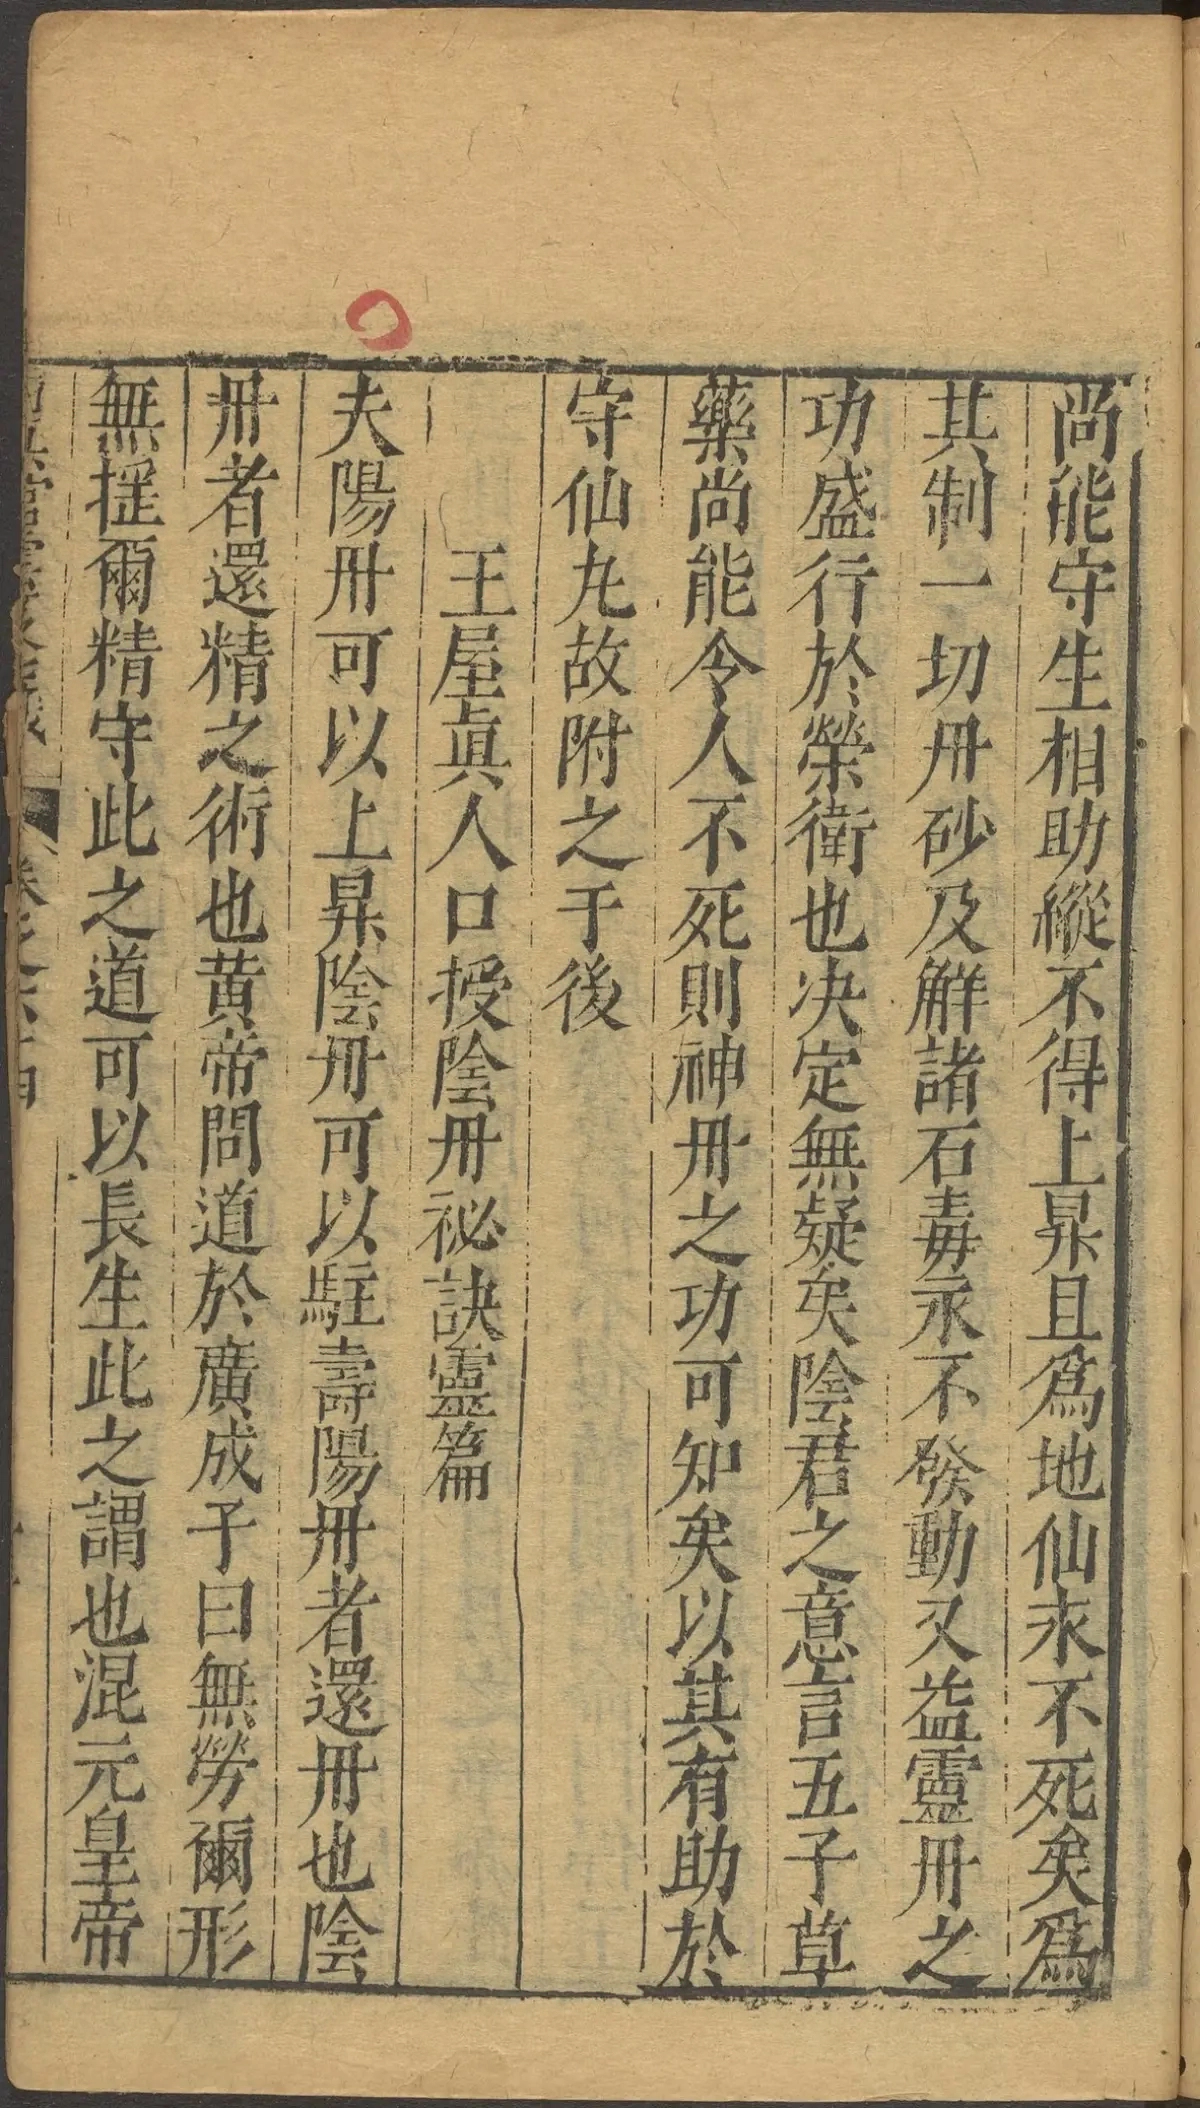 尚能守生相助縱不得上昇且爲地仙永不死矣爲
其制一切丹砂及解諸石毒永不發動又益靈丹之
功盛行於榮衛也决定無疑矣陰君之意言五子草
藥尚能令人不死則神丹之功可知矣以其有助於
守仙丸故附之于後
王屋眞人口授陰丹祕訣靈篇
夫陽丹可以上昇陰丹可以駐壽陽丹者還丹也陰
丹者還精之術也黄帝問道於廣成子曰無勞爾形
無揺爾精守此之道可以長生此之謂也混元皇帝
卷之六十四